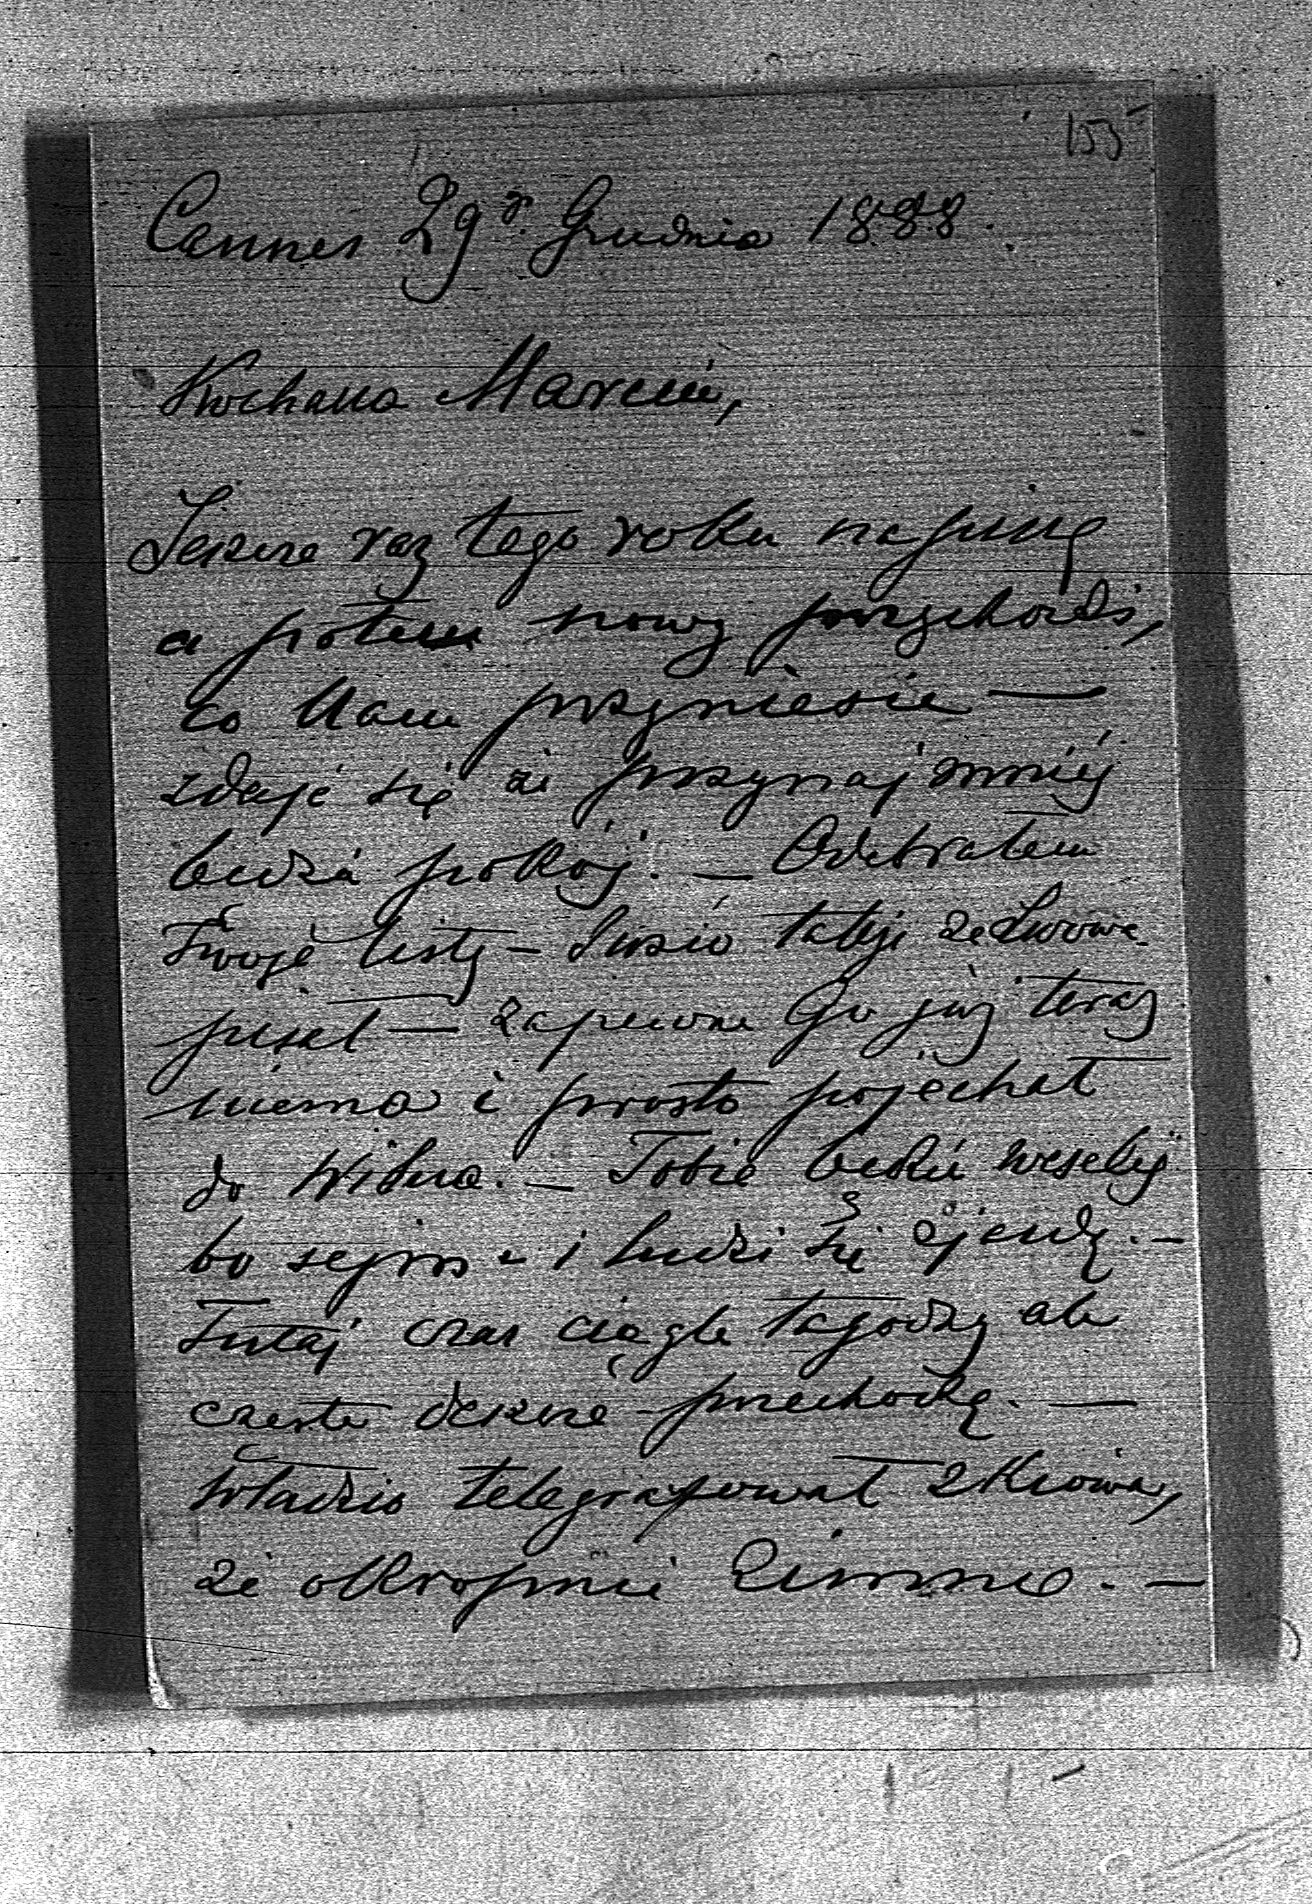 155
Cannes 29go Grudnia 1888.
Kochana Marciu,
Jeszcze raz tego roku napiszę
a potem nowy przychodzi,
co Nam przyniesie —
zdaje się że przynajmniéj
bedzie pokój. — Odebrałem
Twoje listy — także ze Lwowa
pisał — zapewne Go już teraz
niema i prosto pojechał
do Wilna. — Tobie bedzie weseléj
bo sejm i ludzi się zjeżdż. —
Tutaj czas ciągle łagodny ale
często deszcze przechodzą. —
Władzio telegrafował z Kiowa,
że okropnie zimno. —